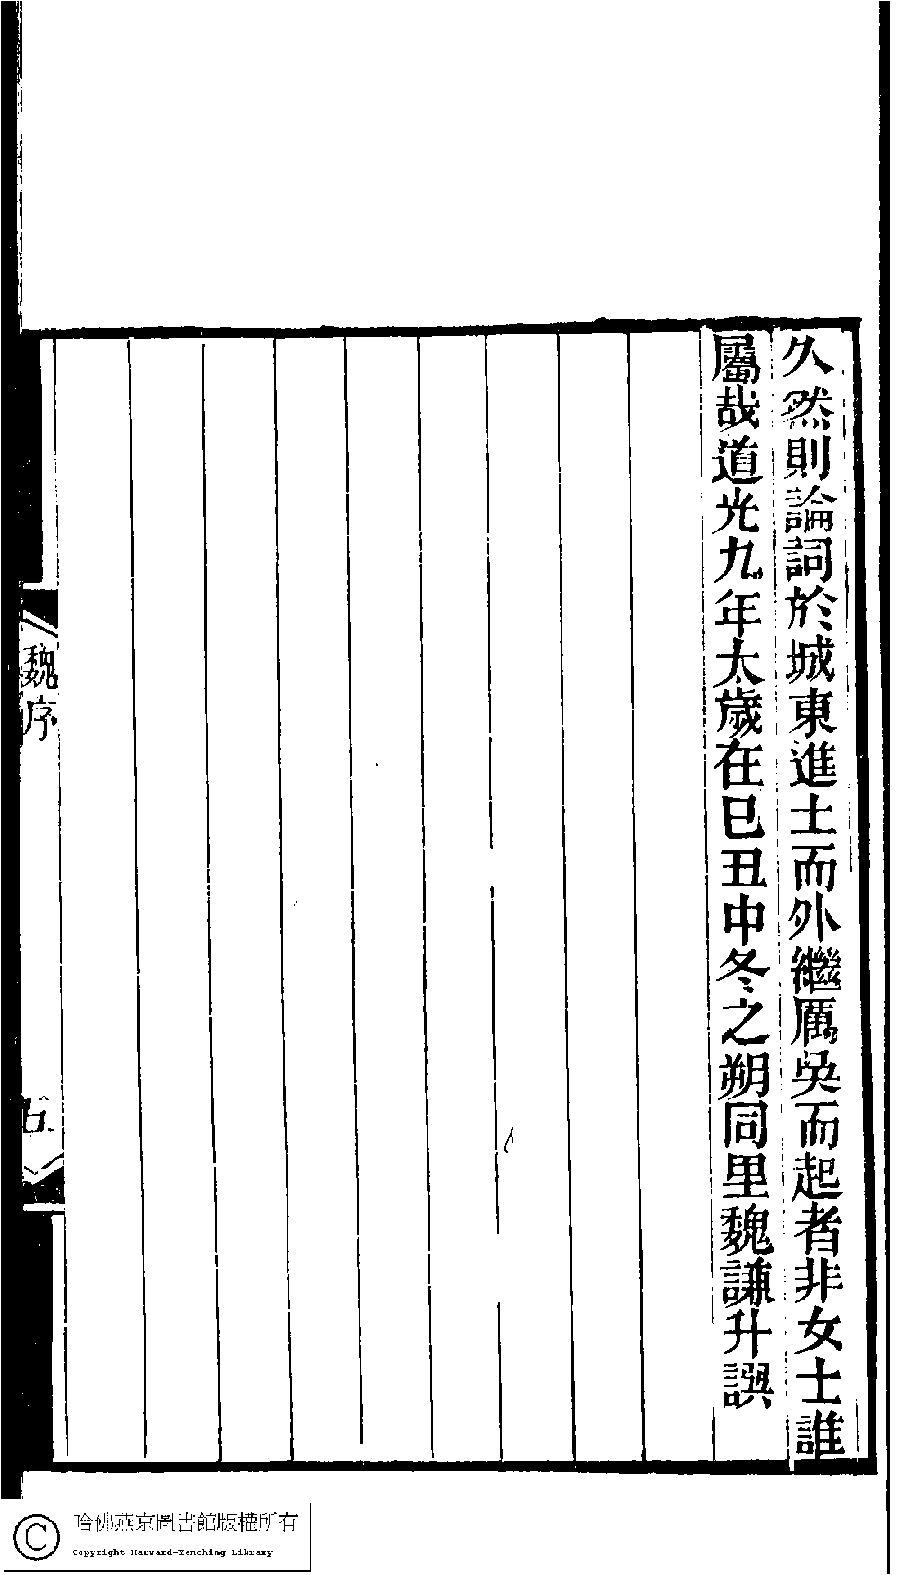 久然則論詞於城東進士而外繼厲吳而起者非女士誰
屬哉道光九年太歲在已丑中冬之朔同里魏謙升譔
魏序
五
哈佛燕京圖書館版權所有
Copyright Harvard-Yenching Library